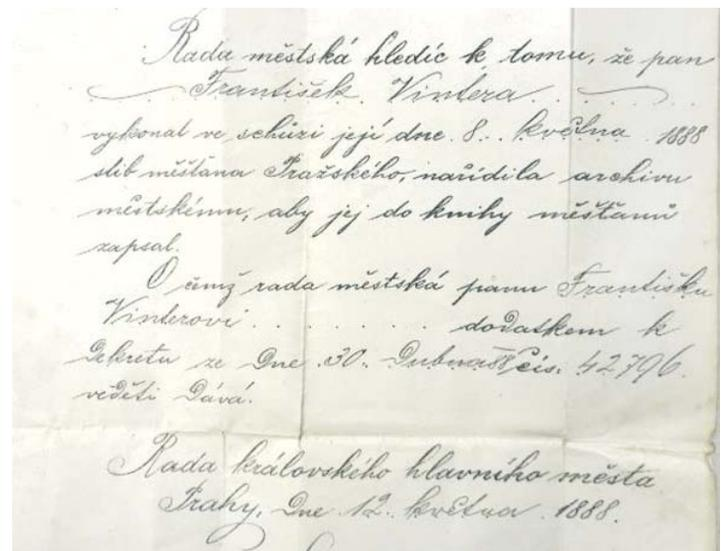 Rada městská hledíc k tomu, že pan
František Vintera
vykonal ve schůzi její dne 8. května 1888
slib měšťana Pražského, nařídila archivu
městskému, aby jej do knihy měšťanů
zapsal.
O čemž rada městská panu Františku
Vinterovi . . . . . . . . dodatkem k
dekretu ze dne 30. dubna 88 čís. 42796.
věděti dává.
Rada královského hlavního města
Prahy, dne 12. května 1888.